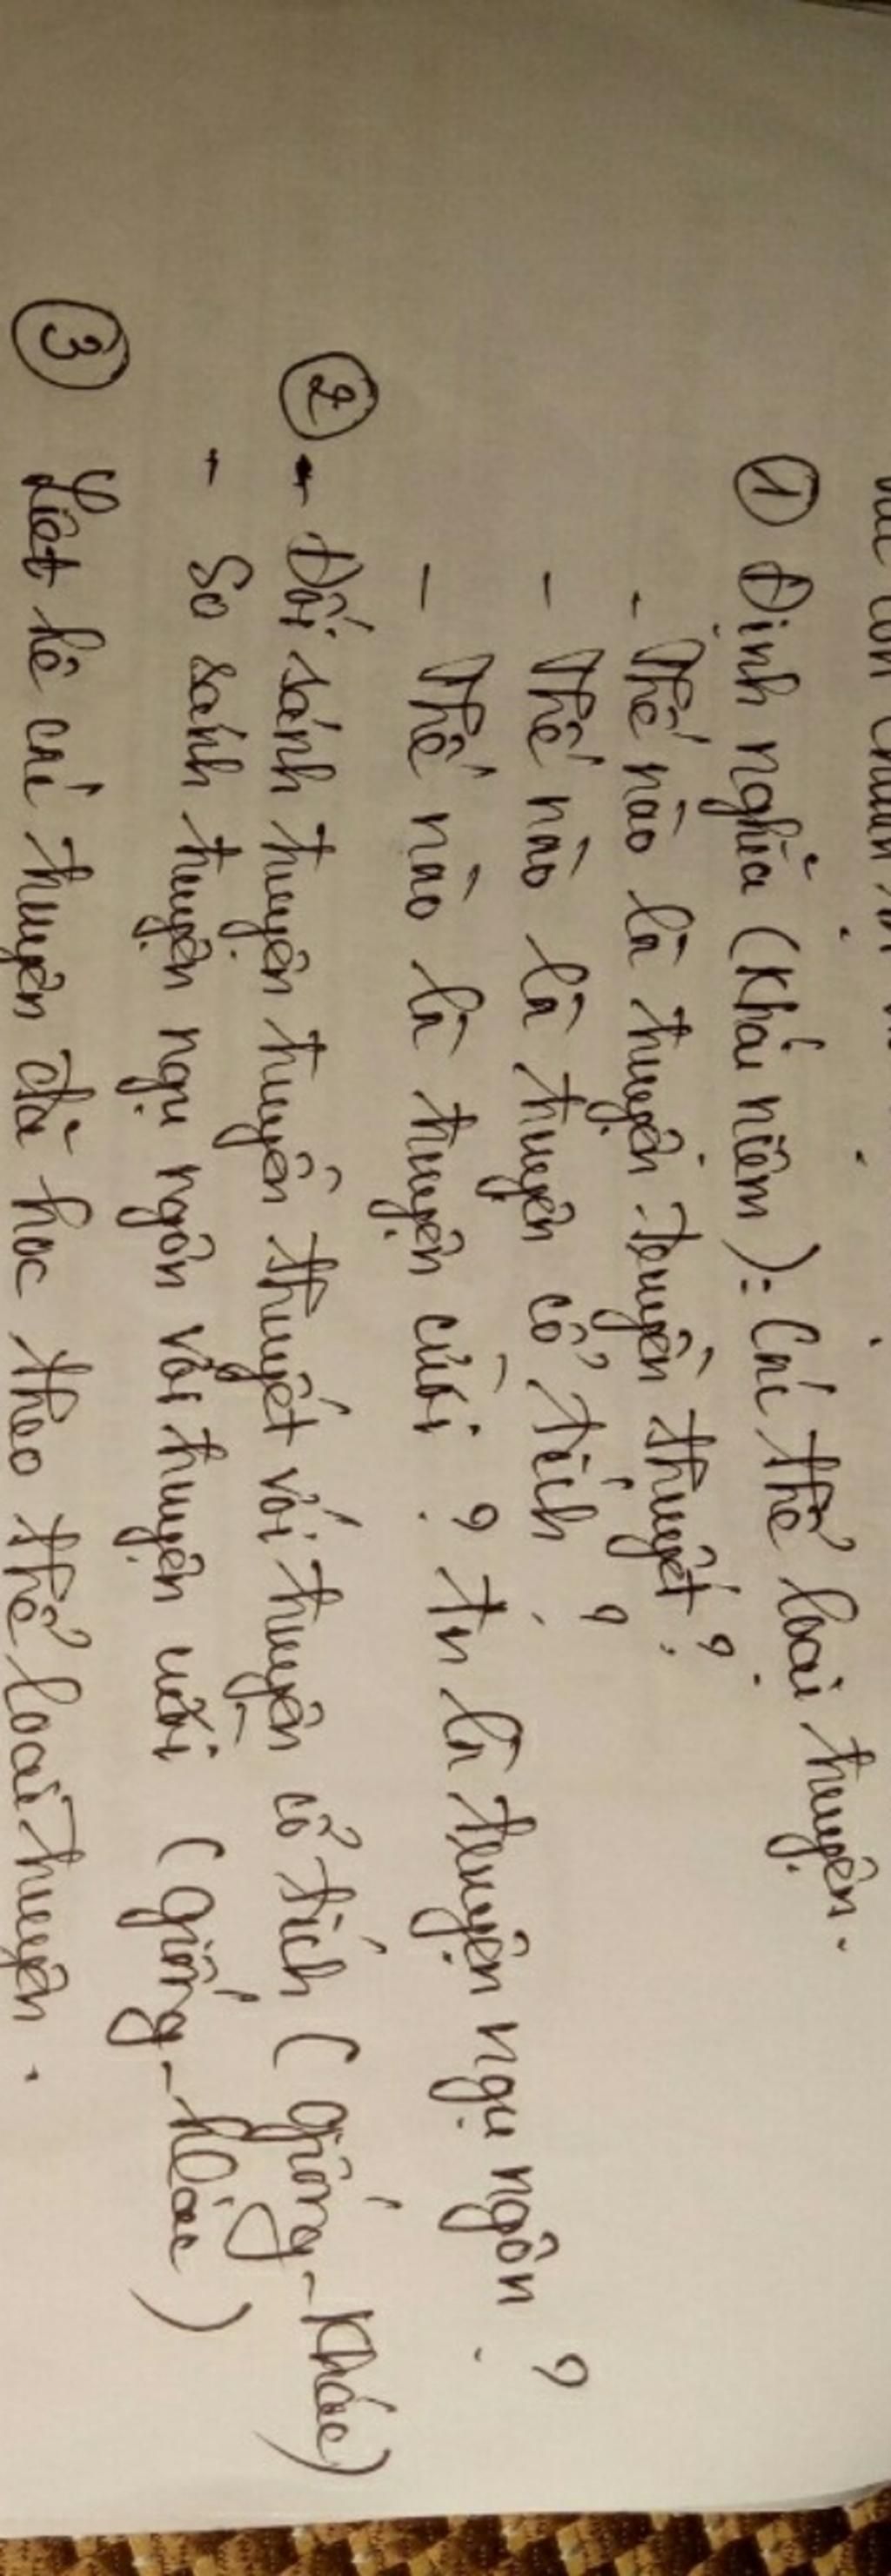 ① Định nghĩa (Khái niệm): Các thể loại truyện.
- Thế nào là truyện truyền thuyết?
- Thế nào là truyện cổ tích?
- Thế nào là truyện cười? là truyện ngụ ngôn?
② - Đối sánh truyện truyền thuyết với truyện cổ tích (giống - Khác)
- So sánh truyện ngụ ngôn với truyện cười (giống - khác)
③ Liệt kê các truyện đã học theo thể loại truyện.